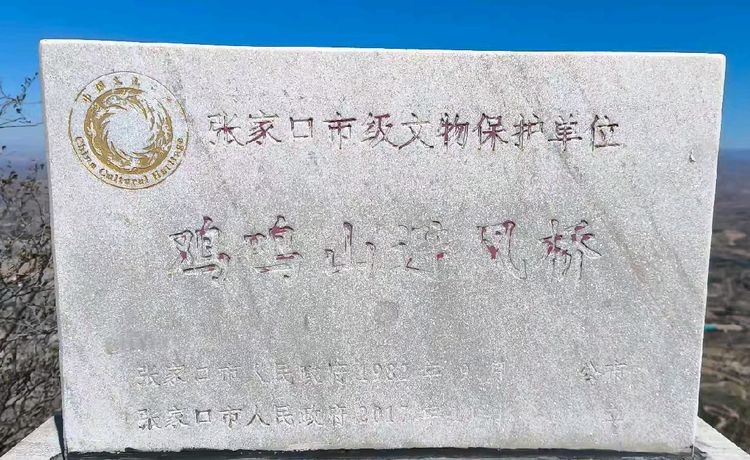 中国文化遗产
China Cultural Heritage
张家口市级文物保护单位
鸡鸣山避风桥
张家口市人民政府 1982 年 9 月 公布
张家口市人民政府 2017 年 立